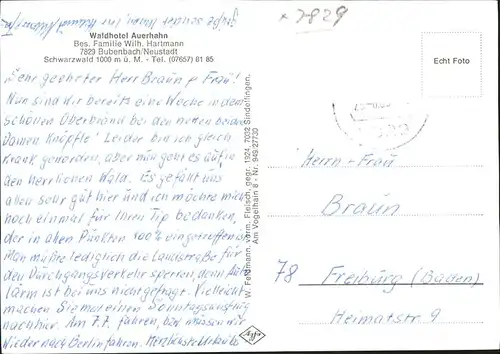 7829
Waldhotel Auerhahn
Bes. Familie Wilh. Hartmann
7829 Bubenbach/Neustadt
Schwarzwald 1000 m ü. M. - Tel. (07657) 81 85
Sehr geehrter Herr Braun + Frau!
Nun sind wir bereits eine Woche in dem
schönen Oberbränd bei den netten beiden
Damen Knöpfle! Leider bin ich gleich
krank geworden, aber nun geht es auf in
den herrlichen Wald. Es gefällt uns
allen sehr gut hier und ich möchte mich
noch einmal für Ihren Tip bedanken,
der in allen Punkten 100% eingetroffen ist.
Man müßte lediglich die Landstraße für
den Durchgangsverkehr sperren, denn Auto-
lärm ist bei uns nicht gefragt. Vielleicht
machen Sie mal einen Sonntagsausflug
nach hier. Am 7.7. fahren, bzw. müssen wir
wieder nach Berlin fahren. Herzlichste Urlaubs-
grüße sendet Ihnen, Ihre
W. Feldmann, vorm. Fleisch, gegr. 1924, 7032 Sindelfingen,
Am Vogelhain 8 - Nr. 949/27730
Echt Foto
Herrn + Frau
Braun
78 Freiburg (Baden)
Heimatstr. 9
Agfa